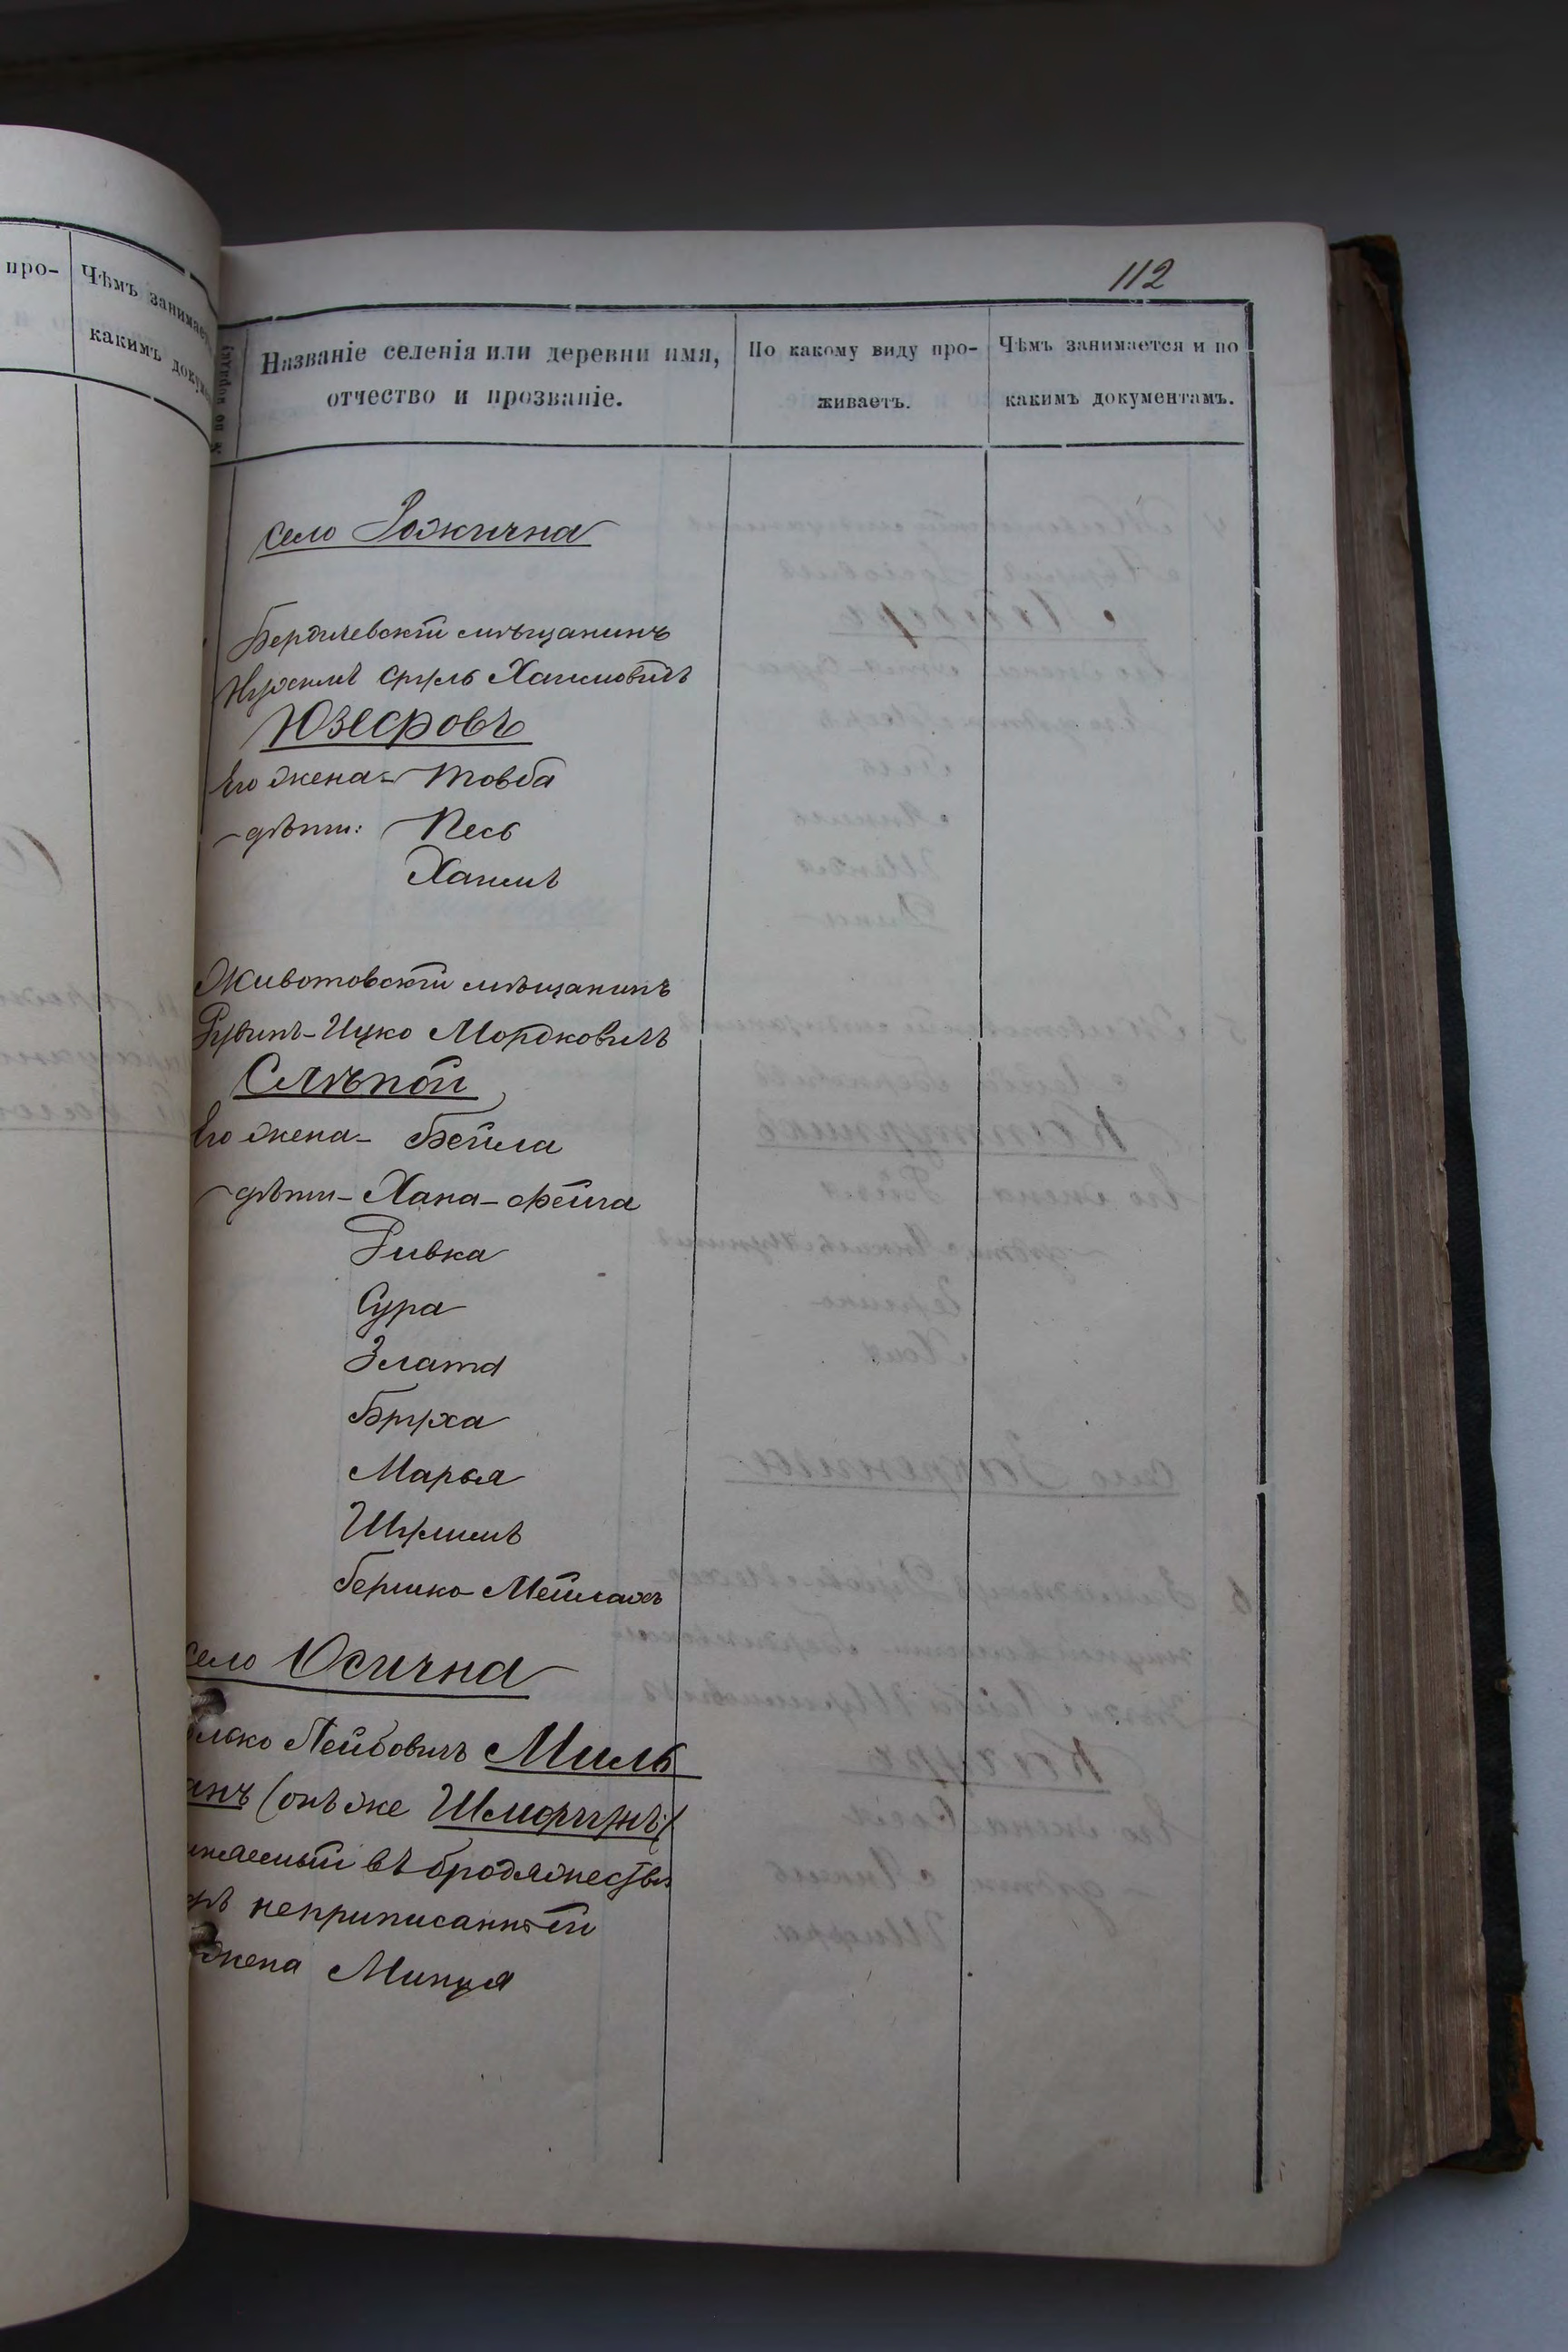 про-
Чѣмъ занимает
какимъ докум
112
№ по порядку
Названіе селенія или деревни имя,
отчество и прозваніе.
По какому виду про-
живаетъ.
Чѣмъ занимается и по
какимъ документамъ.
село Рожична
Бердичевскій мѣщанинъ
Нухимъ Сруль Хаимовичъ
Юзефовъ
Его жена - Товба
дѣти: Песь
Хаимъ
Животовскій мѣщанинъ
Рувинъ-Ицко Мордковичъ
Слѣпой
Его жена - Бейла
дѣти - Хана-Фейга
Ривка
Сура
Злата
Бруха
Марья
Шулимъ
Бершко Мейлахъ
село Осична
лько Лейбовичъ Миль
анъ (онъ же
въ бродяжествѣ
неприписанный
жена Минця